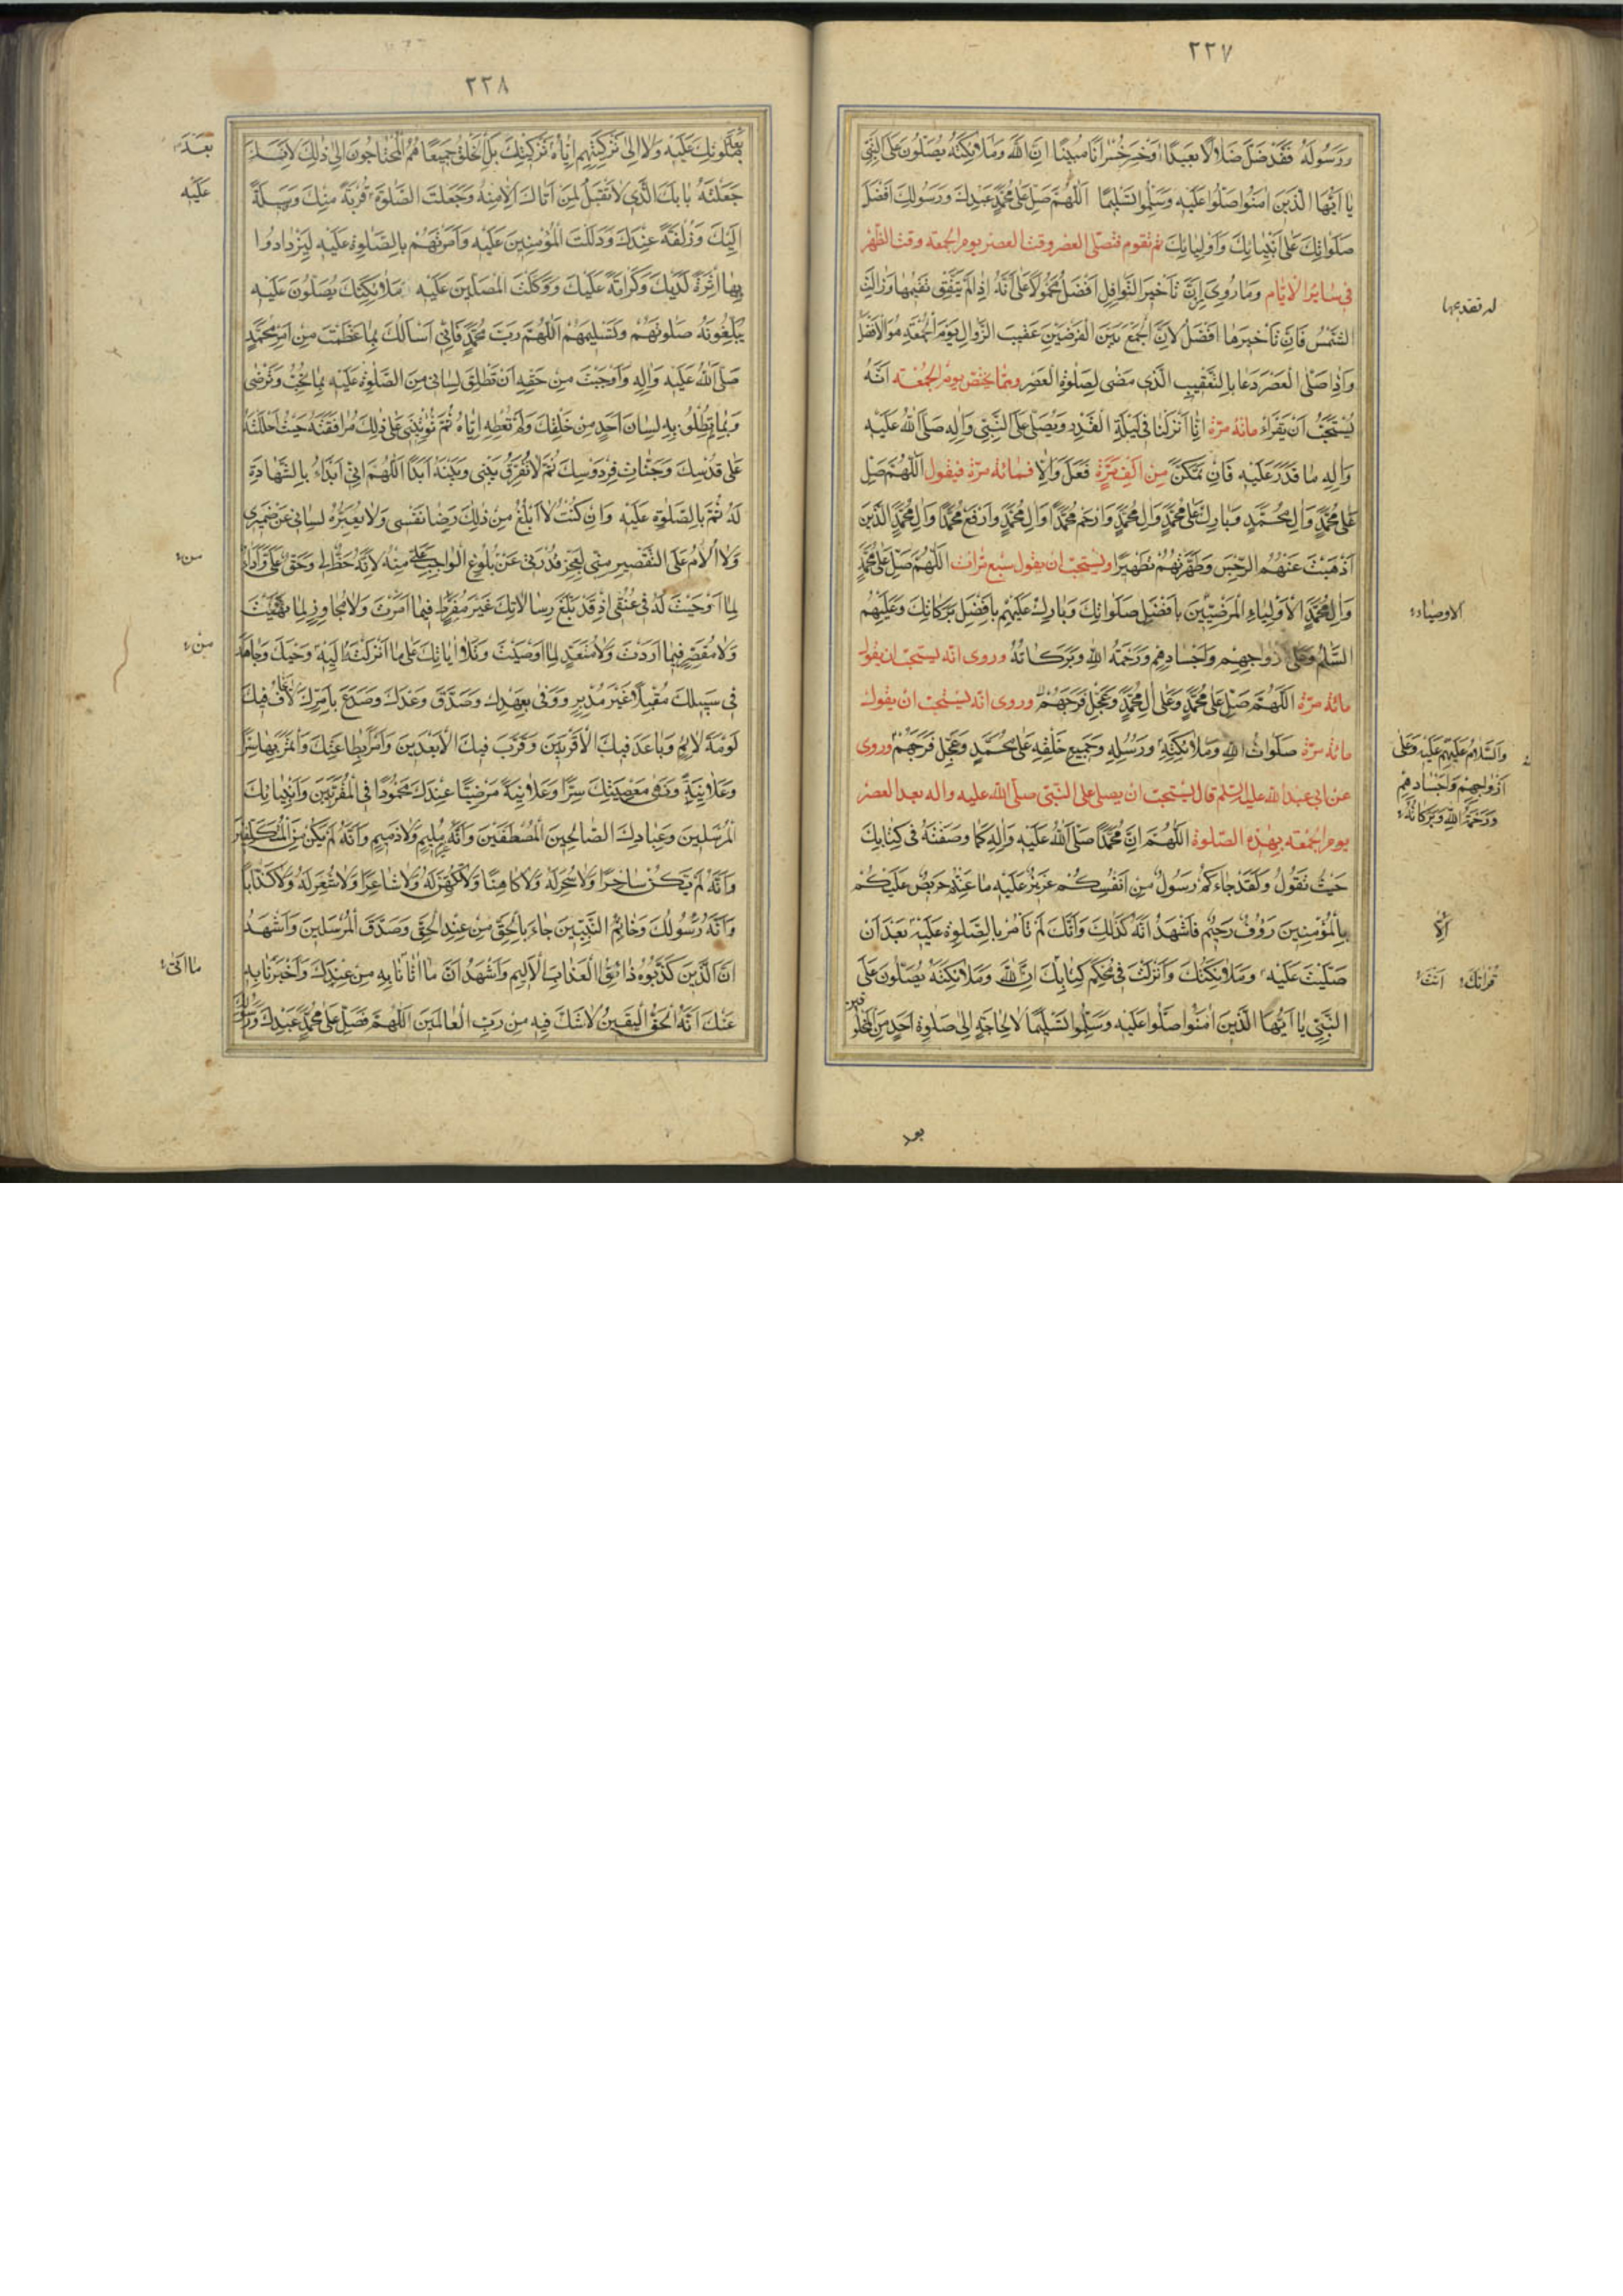 ٢٢٧
وَرَسُولَهُ فَقَدْ ضَلَّ ضَلَالًا بَعِيدًا وَخَسِرَ خُسْرَانًا مُبِينًا اِنَّ اللهَ وَمَلَائِكَتَهُ يُصَلُّونَ عَلَى النَّبِيِّ
يَا اَيُّهَا الَّذِينَ اٰمَنُوا صَلُّوا عَلَيْهِ وَسَلِّمُوا تَسْلِيمًا اَللّٰهُمَّ صَلِّ عَلٰى مُحَمَّدٍ عَبْدِكَ وَرَسُولِكَ اَفْضَلَ
صَلَوَاتِكَ عَلٰى اَنْبِيَائِكَ وَاَوْلِيَائِكَ ثم تقوم فتصلّى العصر وقت العصر يوم الجمعة وقت الظهر
فى سائر الايّام وَمَا رُوِيَ اِنَّ تَأخيرَ النَّوافِلِ اَفْضَلُ مَحْمُولًا عَلى اَنَّهُ اِذٰا لَمْ يَتَّفِقْ تَقْدِيمُهَا وَزَالَتِ
الشَّمْسُ فَاِنَّ تَأخيرَها اَفْضَلُ لِاَنَّ الْجَمْعَ بَيْنَ الْفَرْضَيْنِ عَقيبَ الزَّوالِ يَوْمَ الْجُمُعَةِ هُوَ الْاَفْضَلُ
وَاِذَا صَلَّى الْعَصْرَ دَعَا بِالتَّعْقيبِ الَّذى مَضٰى لِصَلٰوةِ الْعَصْرِ وممّا يختص يوم الجُمُعَة اَنَّهُ
يُسْتَحَبُّ اَنْ يَقْرَأَ مائة مرّة اِنَّا اَنْزَلْنَاهُ فى لَيْلَةِ الْقَدْرِ وَيُصَلّى عَلَى النَّبِيِّ وَآلِهِ صَلَّى اللهُ عَلَيْهِ
وَآلِهِ مَا قَدَرَ عَلَيْهِ فَاِنْ تَمَكَّنَ مِنْ اَلْفِ مَرَّةٍ فَعَلَ وَاِلّا فمائة مرّة فيقول اَللّٰهُمَّ صَلِّ
عَلٰى مُحَمَّدٍ وَآلِ مُحَمَّدٍ وَبَارِكْ عَلٰى مُحَمَّدٍ وَآلِ مُحَمَّدٍ وَارْحَمْ مُحَمَّدًا وَآلَ مُحَمَّدٍ وَارْفَعْ مُحَمَّدًا وَآلَ مُحَمَّدٍ الَّذينَ
اَذْهَبْتَ عَنْهُمُ الرِّجْسَ وَطَهَّرْتَهُمْ تَطْهيرًا ويستحبّ ان يقول سبع مرّات اَللّٰهُمَّ صَلِّ عَلٰى مُحَمَّدٍ
وَآلِ مُحَمَّدٍ الْاَوْلِيَاءِ الْمَرْضِيّينَ بِاَفْضَلِ صَلَوَاتِكَ وَبَارِكْ عَلَيْهِمْ بِاَفْضَلِ بَرَكَاتِكَ وَعَلَيْهِم
السَّلٰمُ وَعَلٰى اَرْوَاحِهِمْ وَاَجْسَادِهِمْ وَرَحْمَةُ اللهِ وَبَرَكَاتُهُ وروى انّه يستحبّ ان يقول
مائة مرّة اَللّٰهُمَّ صَلِّ عَلٰى مُحَمَّدٍ وَعَلٰى آلِ مُحَمَّدٍ وَعَجِّلْ فَرَجَهُمْ وروى انّه يستحبّ ان يقول
مائة مرّة صَلَوَاتُ اللهِ وَمَلَائِكَتِهِ وَرُسُلِهِ وَجَميعِ خَلْقِهِ عَلٰى مُحَمَّدٍ وَعَجِّلْ فَرَجَهُمْ وروى
عن ابى عبد الله عليه السّلم قال يستحبّ ان يصلى على النّبىّ صلّى الله عليه واله بعد العصر
يوم الجُمُعَة بهٰذه الصّلوة اَللّٰهُمَّ اِنَّ مُحَمَّدًا صَلَّى اللهُ عَلَيْهِ وَآلِهِ كَمَا وَصَفْتَهُ فى كِتَابِكَ
حَيْثُ تَقُولُ وَلَقَدْ جَاءَكُمْ رَسُولٌ مِنْ اَنْفُسِكُمْ عَزيزٌ عَلَيْهِ مَا عَنِتُّمْ حَريصٌ عَلَيْكُمْ
بِالْمُؤْمِنينَ رَؤُفٌ رَحيمٌ فَاَشْهَدُ اَنَّهُ كَذٰلِكَ وَاَنَّكَ لَمْ تَأمُرْ بِالصَّلٰوةِ عَلَيْهِ بَعْدَ اَنْ
صَلَّيْتَ عَلَيْهِ وَمَلَائِكَتُكَ وَاَنْزَلْتَ فى مُحْكَمِ كِتَابِكَ اِنَّ اللهَ وَمَلَائِكَتَهُ يُصَلُّونَ عَلَى
النَّبِيِّ يَا اَيُّهَا الَّذينَ اٰمَنُوا صَلُّوا عَلَيْهِ وَسَلِّمُوا تَسْليمًا لَا لِحَاجَةٍ اِلٰى صَلٰوةِ اَحَدٍ مِنَ الْمَخْلُوقينَ
الاوصياء
وَالسَّلَامُ عَلَيْهِمْ عَلَيْهِ وَعَلٰى
اَرْوَاحِهِمْ وَاَجْسَادِهِمْ
وَرَحْمَةُ اللهِ وَبَرَكَاتُهُ
اِلَّا
قرانك اَنْتَ
بعد
٢٢٨
صَلَوٰتِكَ عَلَيْهِ وَلَا اِلٰى تَزْكِيَتِهِمْ اِيَّاهُ تَزْكِيَتِكَ بَلِ الْخَلْقُ جَميعًا هُمُ الْمُحْتَاجُونَ اِلٰى ذٰلِكَ لِاَنَّكَ
جَعَلْتَهُ بَابَكَ الَّذى لَا تَقْبَلُ لِمَنْ اَتَاكَ اِلَّا مِنْهُ وَجَعَلْتَ الصَّلٰوةَ قُرْبَةً مِنْكَ وَوَسيلَةً
اِلَيْكَ وَزُلْفَةً عِنْدَكَ وَدَلَلْتَ الْمُؤْمِنينَ عَلَيْهِ وَاَمَرْتَهُمْ بِالصَّلٰوةِ عَلَيْهِ لِيَزْدَادُوا
بِهَا اَثَرَةً لَدَيْكَ وَكَرَامَةً عَلَيْكَ وَوَكَّلْتَ الْمُصَلّينَ عَلَيْهِ مَلَائِكَتَكَ يُصَلُّونَ عَلَيْهِ
يُبَلِّغُونَهُ صَلَوٰتَهُمْ وَتَسْليمَهُمْ اَللّٰهُمَّ رَبَّ مُحَمَّدٍ فَاِنّى اَسْاَلُكَ بِمَا عَظَّمْتَ مِنْ اَمْرِ مُحَمَّدٍ
صَلَّى اللهُ عَلَيْهِ وَآلِهِ وَاَوْجَبْتَ مِنْ حَقِّهِ اَنْ تُطْلِقَ لِسَانى مِنَ الصَّلٰوةِ عَلَيْهِ بِمَا تُحِبُّ وَتَرْضٰى
وَبِمَا تُطْلِقُ بِهِ لِسَانَ اَحَدٍ مِنْ خَلْقِكَ وَلَمْ تُعْطِهِ اِيَّاهُ ثُمَّ تُؤْتِيَنى عَلٰى ذٰلِكَ مُرَافَقَتَهُ حَيْثُ اَحْلَلْتَهُ
عَلٰى قُدْسِكَ وَجَنَّاتِ فِرْدَوْسِكَ ثُمَّ لَا تُفَرِّقْ بَيْنى وَبَيْنَهُ اَبَدًا اَللّٰهُمَّ اِنّى اَبْدَاُ بِالشَّهَادَةِ
لَهُ ثُمَّ بِالصَّلٰوةِ عَلَيْهِ وَاِنْ كُنْتُ لَا اَبْلُغُ مِنْ ذٰلِكَ رِضَا نَفْسى وَلَا يُعَبِّرُهُ لِسَانى عَنْ ضَميرى
وَلَا اُلَامُ عَلَى التَّقْصيرِ مِنّى لِعَجْزِ قُدْرَتى عَنْ بُلُوغِ الْوَاجِبِ عَلَىَّ مِنْهُ لِاَنَّهُ حَظٌّ لى وَحَقٌّ عَلَىَّ وَاَدَاءٌ
لِمَا اَوْجَبْتَ لَهُ فى عُنُقى اِذْ قَدْ بَلَّغَ رِسَالَاتِكَ غَيْرَ مُفَرِّطٍ فيمَا اَمَرْتَ وَلَا مُجَاوِزٍ لِمَا نَهَيْتَ
وَلَا مُقَصِّرٍ فيمَا اَرَدْتَ وَلَا مُتَعَدٍّ لِمَا اَوْصَيْتَ وَتَلَا اٰيَاتِكَ عَلٰى مَا اَنْزَلْتَهُ اِلَيْهِ وَحْيَكَ وَجَاهَدَ
فى سَبيلِكَ مُقْبِلًا غَيْرَ مُدْبِرٍ وَوَفٰى بِعَهْدِكَ وَصَدَّقَ وَعْدَكَ وَصَدَعَ بِاَمْرِكَ لَا يَخَافُ فيكَ
لَوْمَةَ لَائِمٍ وَبَاعَدَ فيكَ الْاَقْرَبينَ وَقَرَّبَ فيكَ الْاَبْعَدينَ وَاَمَرَ بِطَاعَتِكَ وَائْتَمَرَ بِهَا سِرًّا
وَعَلَانِيَةً وَنَهٰى مَعْصِيَتِكَ سِرًّا وَعَلَانِيَةً مَرْضِيًّا عِنْدَكَ مَحْمُودًا فى الْمُقَرَّبينَ وَاَنْبِيَائِكَ
الْمُرْسَلينَ وَعِبَادِكَ الصَّالِحينَ الْمُصْطَفَيْنَ وَاَنَّهُ غَيْرُ مُليمٍ وَلَا ذَميمٍ وَاَنَّهُ لَمْ يَكُنْ مِنَ الْمُتَكَلِّفينَ
وَاَنَّهُ لَمْ يَكُنْ سَاحِرًا وَلَا سُحِرَ لَهُ وَلَا كَاهِنًا وَلَا تُكُهِّنَ لَهُ وَلَا شَاعِرًا وَلَا شُعِرَ لَهُ وَلَا كَذَّابًا
وَاَنَّهُ رَسُولُكَ وَخَاتَمُ النَّبِيّينَ جَاءَ بِالْحَقِّ مِنْ عِنْدِ الْحَقِّ وَصَدَّقَ الْمُرْسَلينَ وَاَشْهَدُ
اَنَّ الَّذينَ كَذَّبُوهُ ذَائِقُوا الْعَذَابِ الْاَليمِ وَاَشْهَدُ اَنَّ مَا اَتَانَا بِهِ مِنْ عِنْدِكَ وَاَخْبَرَنَا بِهِ
عَنْكَ اَنَّهُ الْحَقُّ الْيَقينُ لَا شَكَّ فيهِ مِنْ رَبِّ الْعَالَمينَ اَللّٰهُمَّ فَصَلِّ عَلٰى مُحَمَّدٍ عَبْدِكَ وَرَسُولِكَ
بَعْدَ
عَلَيْهِ
من
مِنْ